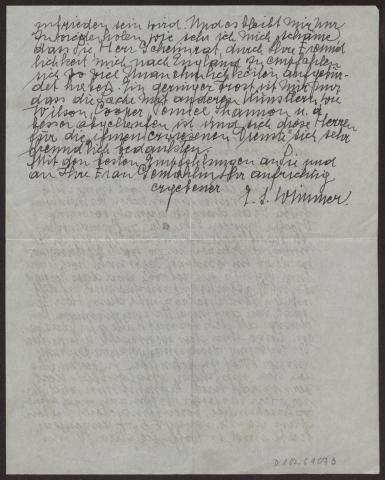 zufrieden sein wird. Und es bleibt mir nur
zu wiederholen wie sehr ich mich schäme
dass die Herr Geheimrat durch Ihre Freund
lichkeit mich nach England zu empfehlen
sich so viel Unannehmlichkeiten aufgebür
det haben. Ein geringer Trost ist mir nur
dass die Sache mit anderen Künstlern wie
Wilson, Cooper, Shannon u. a.
besser abgelaufen ist und sich diese Herren
für die ihnen erwiesenen Dienste sich sehr
freundlich bedankten.
Mit den besten Empfehlungen an Sie und
an Ihre Frau Gemahlin Ihr aufrichtig
ergebener
Wimmer.